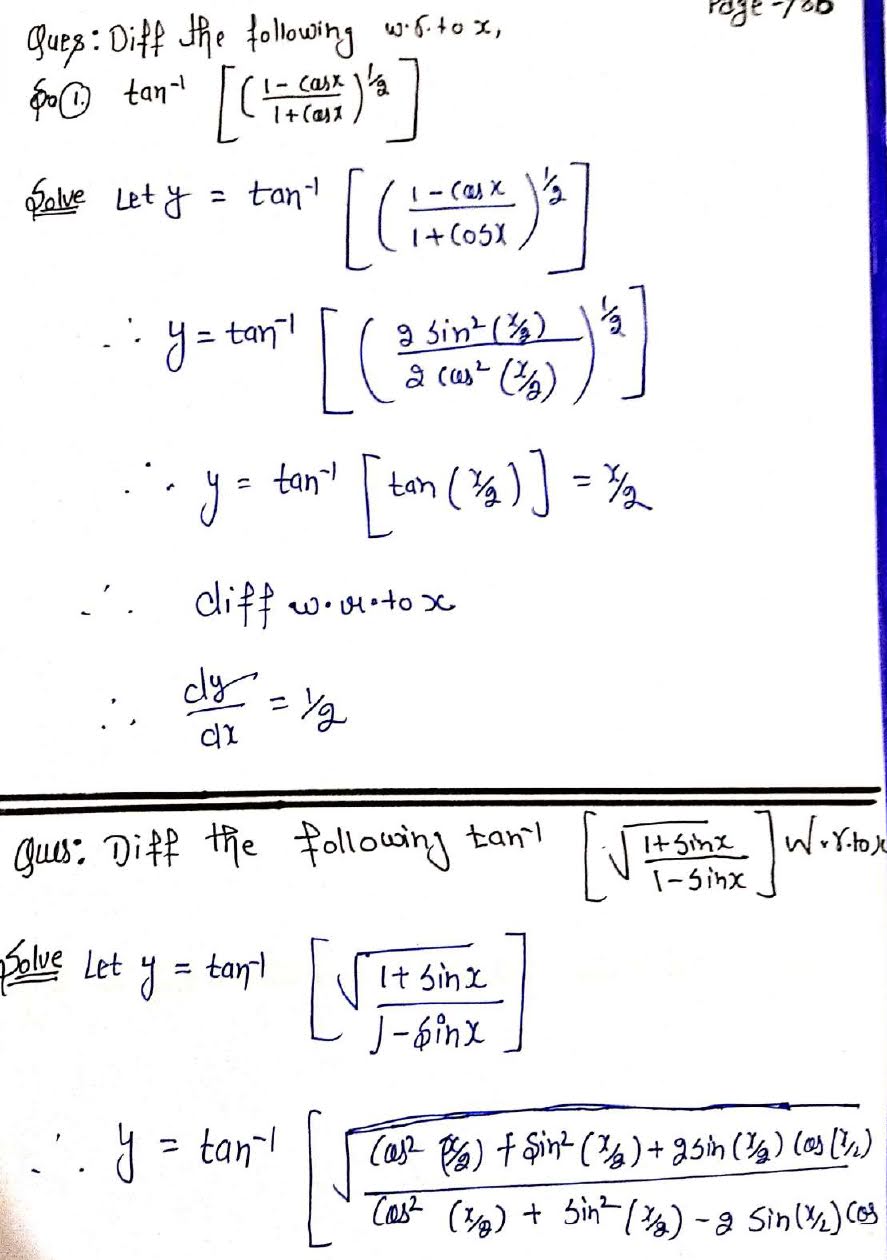 Page-
Ques: Diff the following w.r.to x,
(1.) tan⁻¹ [((1 - cosx)/(1 + cosx))^(1/2)]
Solve Let y = tan⁻¹ [((1 - cos x)/(1 + cosx))^(1/2)]
∴ y = tan⁻¹ [((2 sin² (x/2))/(2 cos² (x/2)))^(1/2)]
∴ y = tan⁻¹ [tan (x/2)] = x/2
∴ diff w.r.to x
∴ dy/dx = 1/2
Ques: Diff the following tan⁻¹ [√((1+sinx)/(1-sinx))] W.r.to x
Solve Let y = tan⁻¹ [√((1+sinx)/(1-sinx))]
∴ y = tan⁻¹ [√((cos² (x/2) + sin² (x/2) + 2sin (x/2) cos (x/2))/(cos² (x/2) + sin² (x/2) - 2 sin(x/2) cos